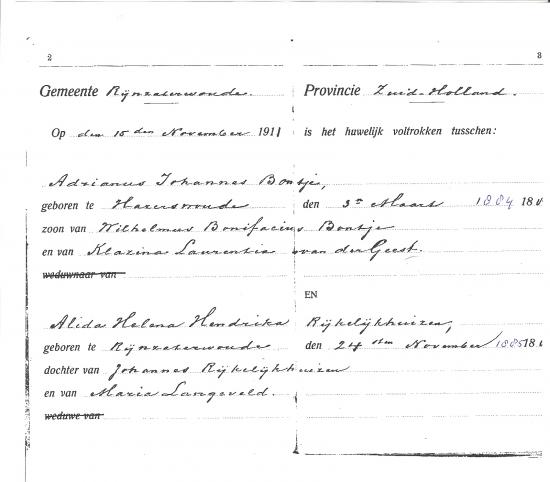 2 3
Gemeente Rijnzaterwoude. Provincie Zuid-Holland.
Op den 15 den November 1911 is het huwelijk voltrokken tusschen:
Adrianus Johannes Bontje,
geboren te Hazerswoude den 3n Maart 1884 18
zoon van Wilhelmus Bonifacius Bontje
en van Klazina Laurentia van der Geest.
weduwnaar van
EN
Alida Helena Hendrika Rijkelijkhuizen,
geboren te Rijnzaterwoude den 24sten November 1885 18
dochter van Johannes Rijkelijkhuizen
en van Maria Langeveld.
weduwe van